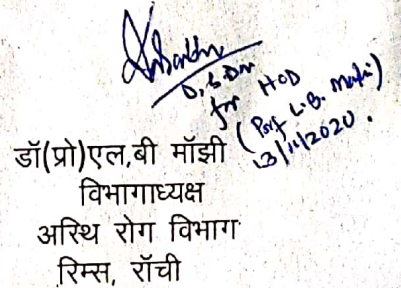 for HOD
(Prof L.B. Majhi)
13/11/2020.
डॉ(प्रो)एल,बी मॉझी
विभागाध्यक्ष
अस्थि रोग विभाग
रिम्स, रॉची